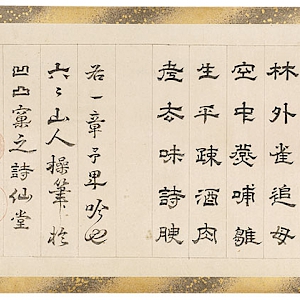 林外雀追母
空中燕哺雛
生平疎酒肉
老去味詩腴
右一章予卑吟也
六々山人操筆於
凹凸窠之詩仙堂